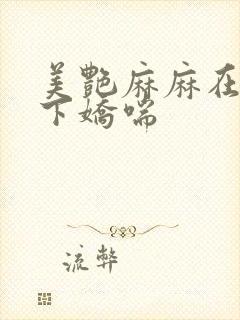 美艷麻麻在
下嬌喘
流弊